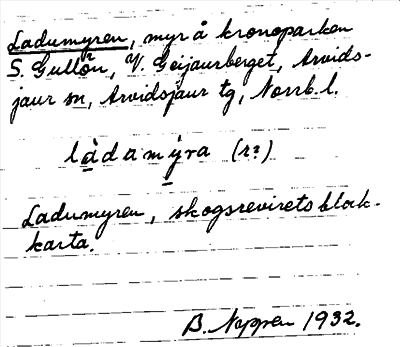 Ladumyren, myr å kronoparken
S. Gullön, V. Geijaurberget, Arvids-
jaur sn, Arvidsjaur tg, Norrb. l.
làdamýra (r?)
Ladumyren, skogsrevirets blok-
karta.
B. Nyppen 1932.